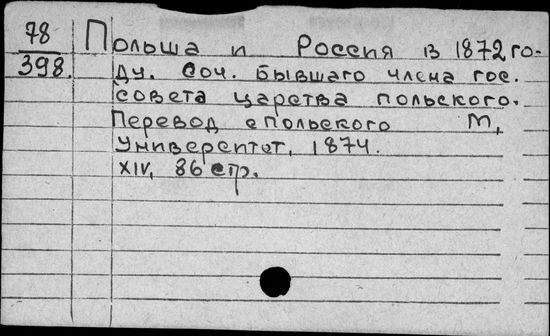 78
398.
Польша и Россия в 1872 го-
ду. Соч. бывшаго члена гос.
совета царства польского.
Перевод с польского М,
Университет, 1874.
XIV, 86 стр.